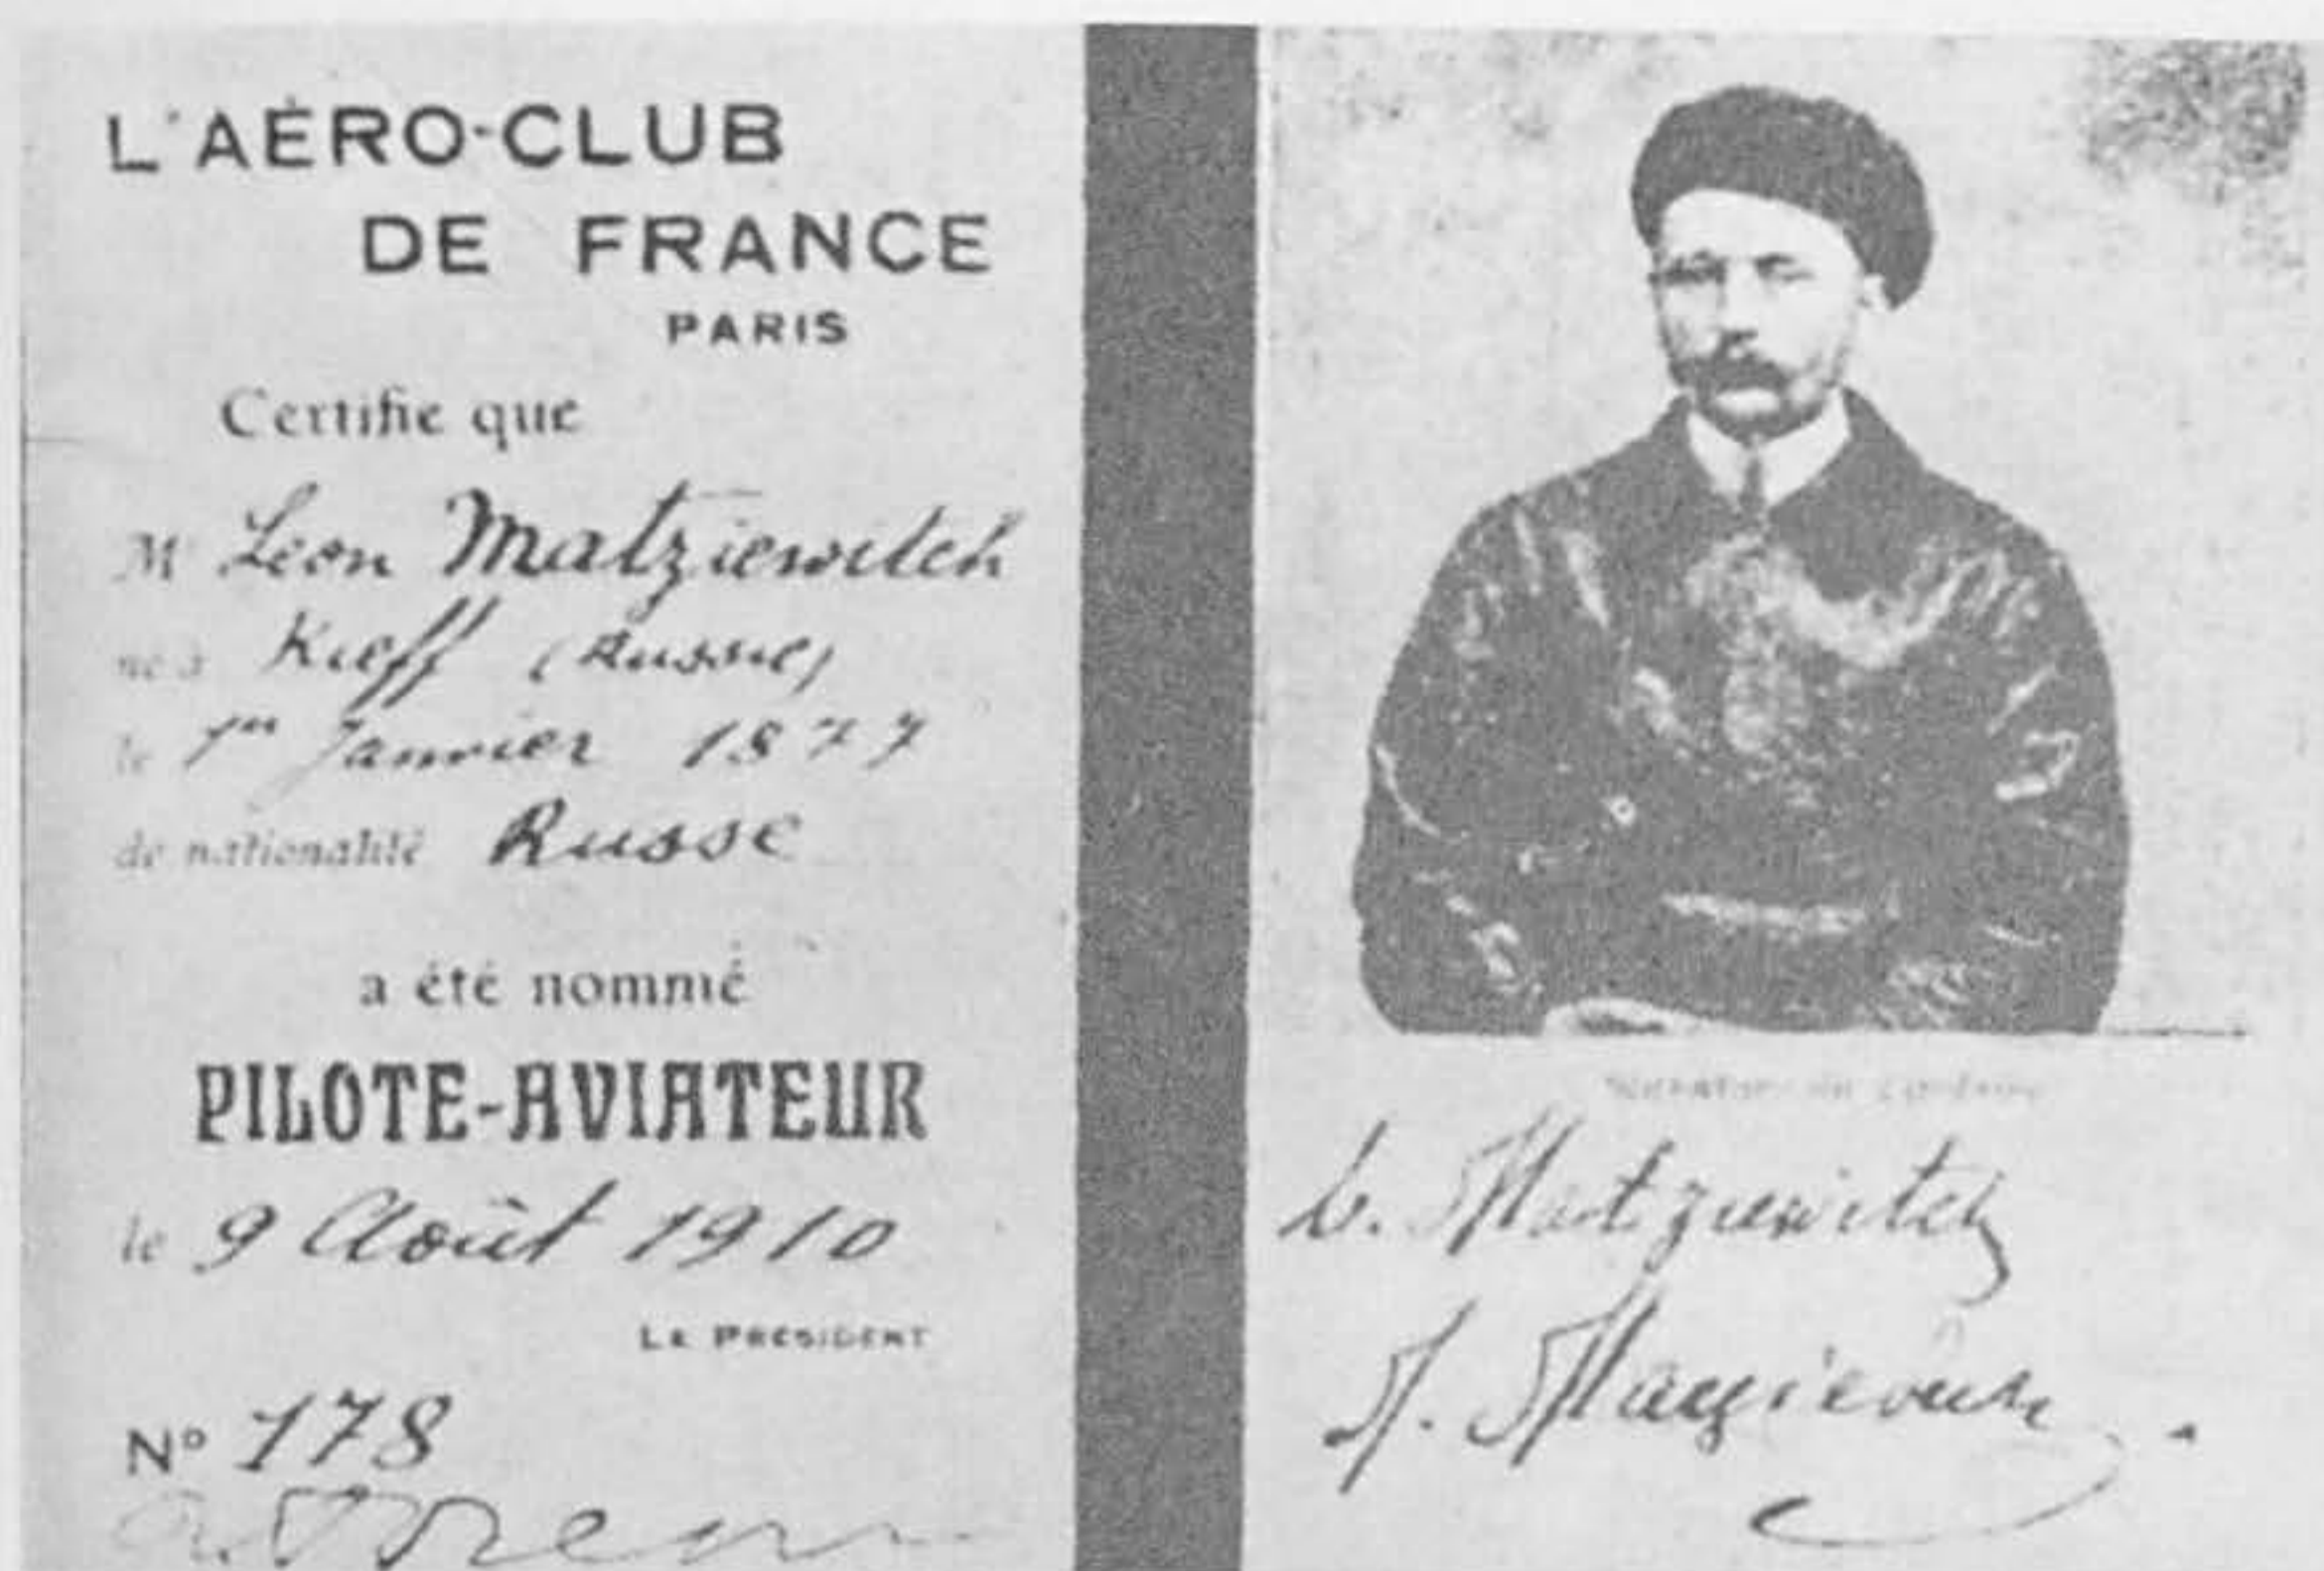 L'AÉRO-CLUB
DE FRANCE
PARIS
Certifie que
M Léon Matziewitch
né à Kieff (Russie)
le 1er Janvier 1877
de nationalité Russe
a été nommé
PILOTE-AVIATEUR
le 9 Août 1910
LE PRÉSIDENT
No 178
Signature du Titulaire
L. Matziewitch
Л. Мацiевичъ.